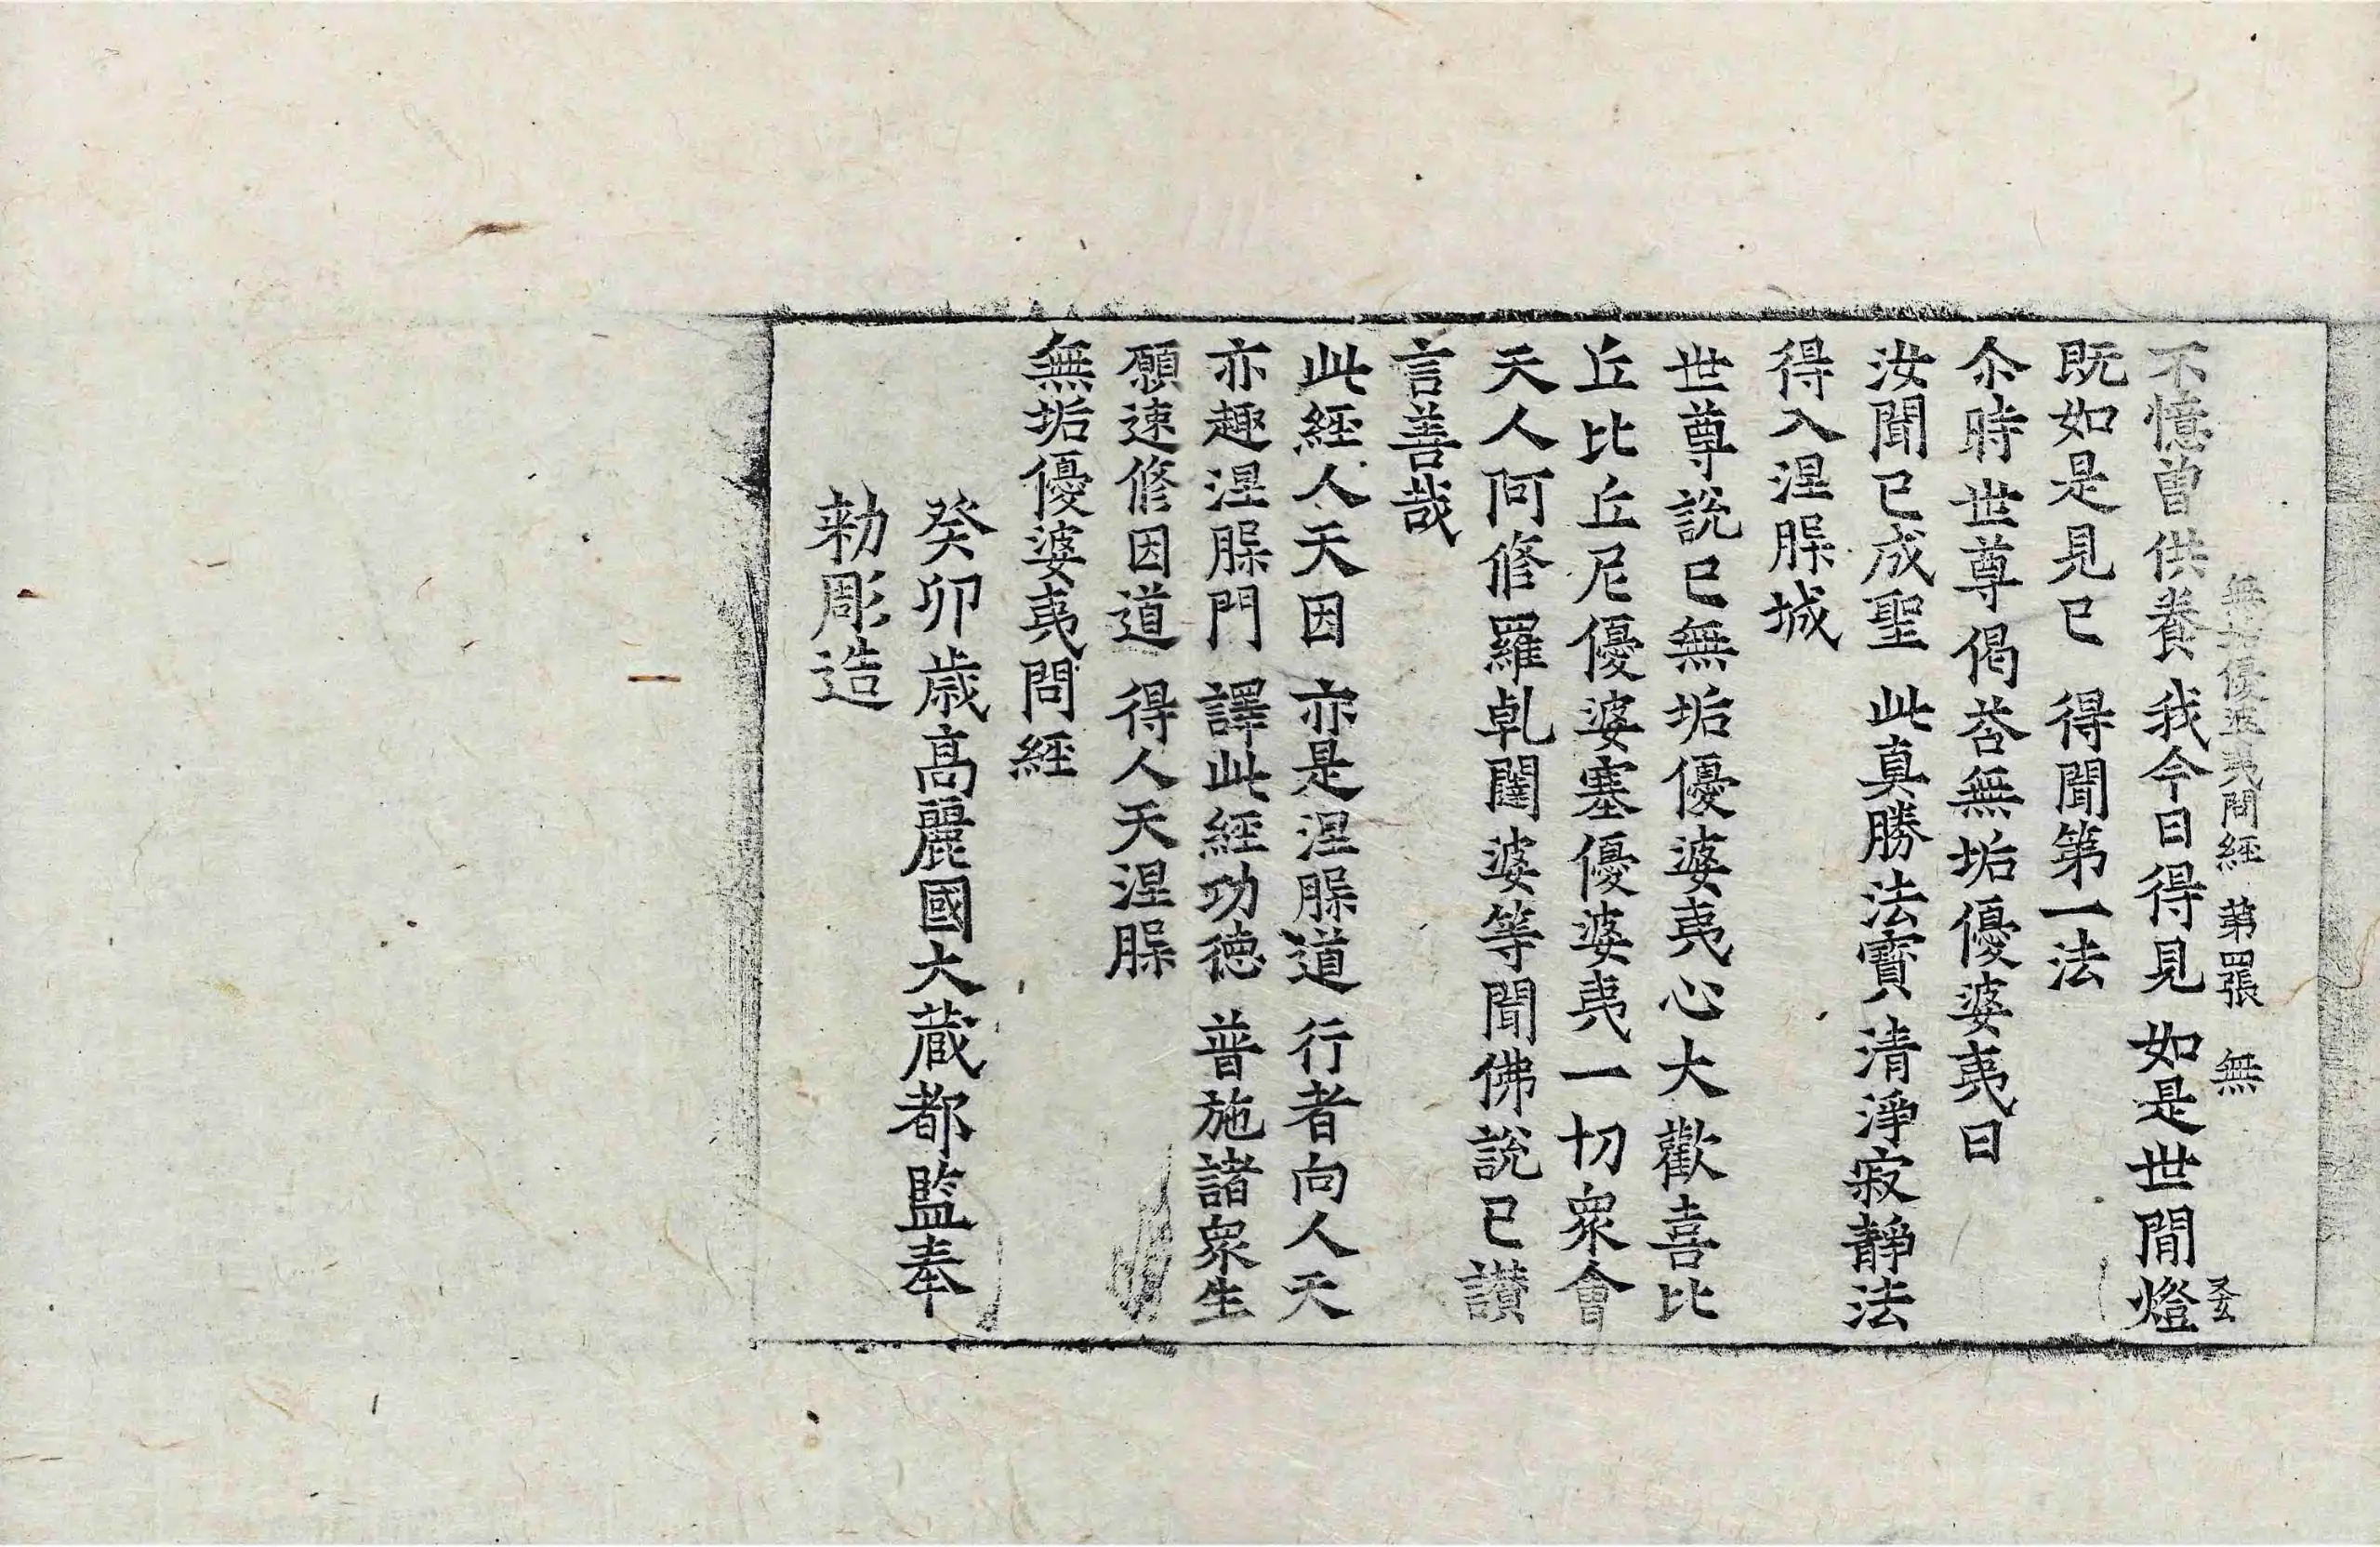 無垢優婆夷問經 第四張 無 玄
不憶曽供養 我今日得見 如是世間燈
既如是見已 得聞第一法
尒時世尊偈荅無垢優婆夷曰
汝聞已成聖 此真勝法寶 清淨寂靜法
得入涅槃城
世尊說已無垢優婆夷心大歡喜比
丘比丘尼優婆塞優婆夷一切衆會
天人阿修羅乹闥婆等聞佛說已讃
言善哉
此經人天因 亦是涅槃道 行者向人天
亦趣涅槃門 譯此經功德 普施諸衆生
願速修因道 得人天涅槃
無垢優婆夷問經
癸卯歳高麗國大藏都監奉
勑彫造